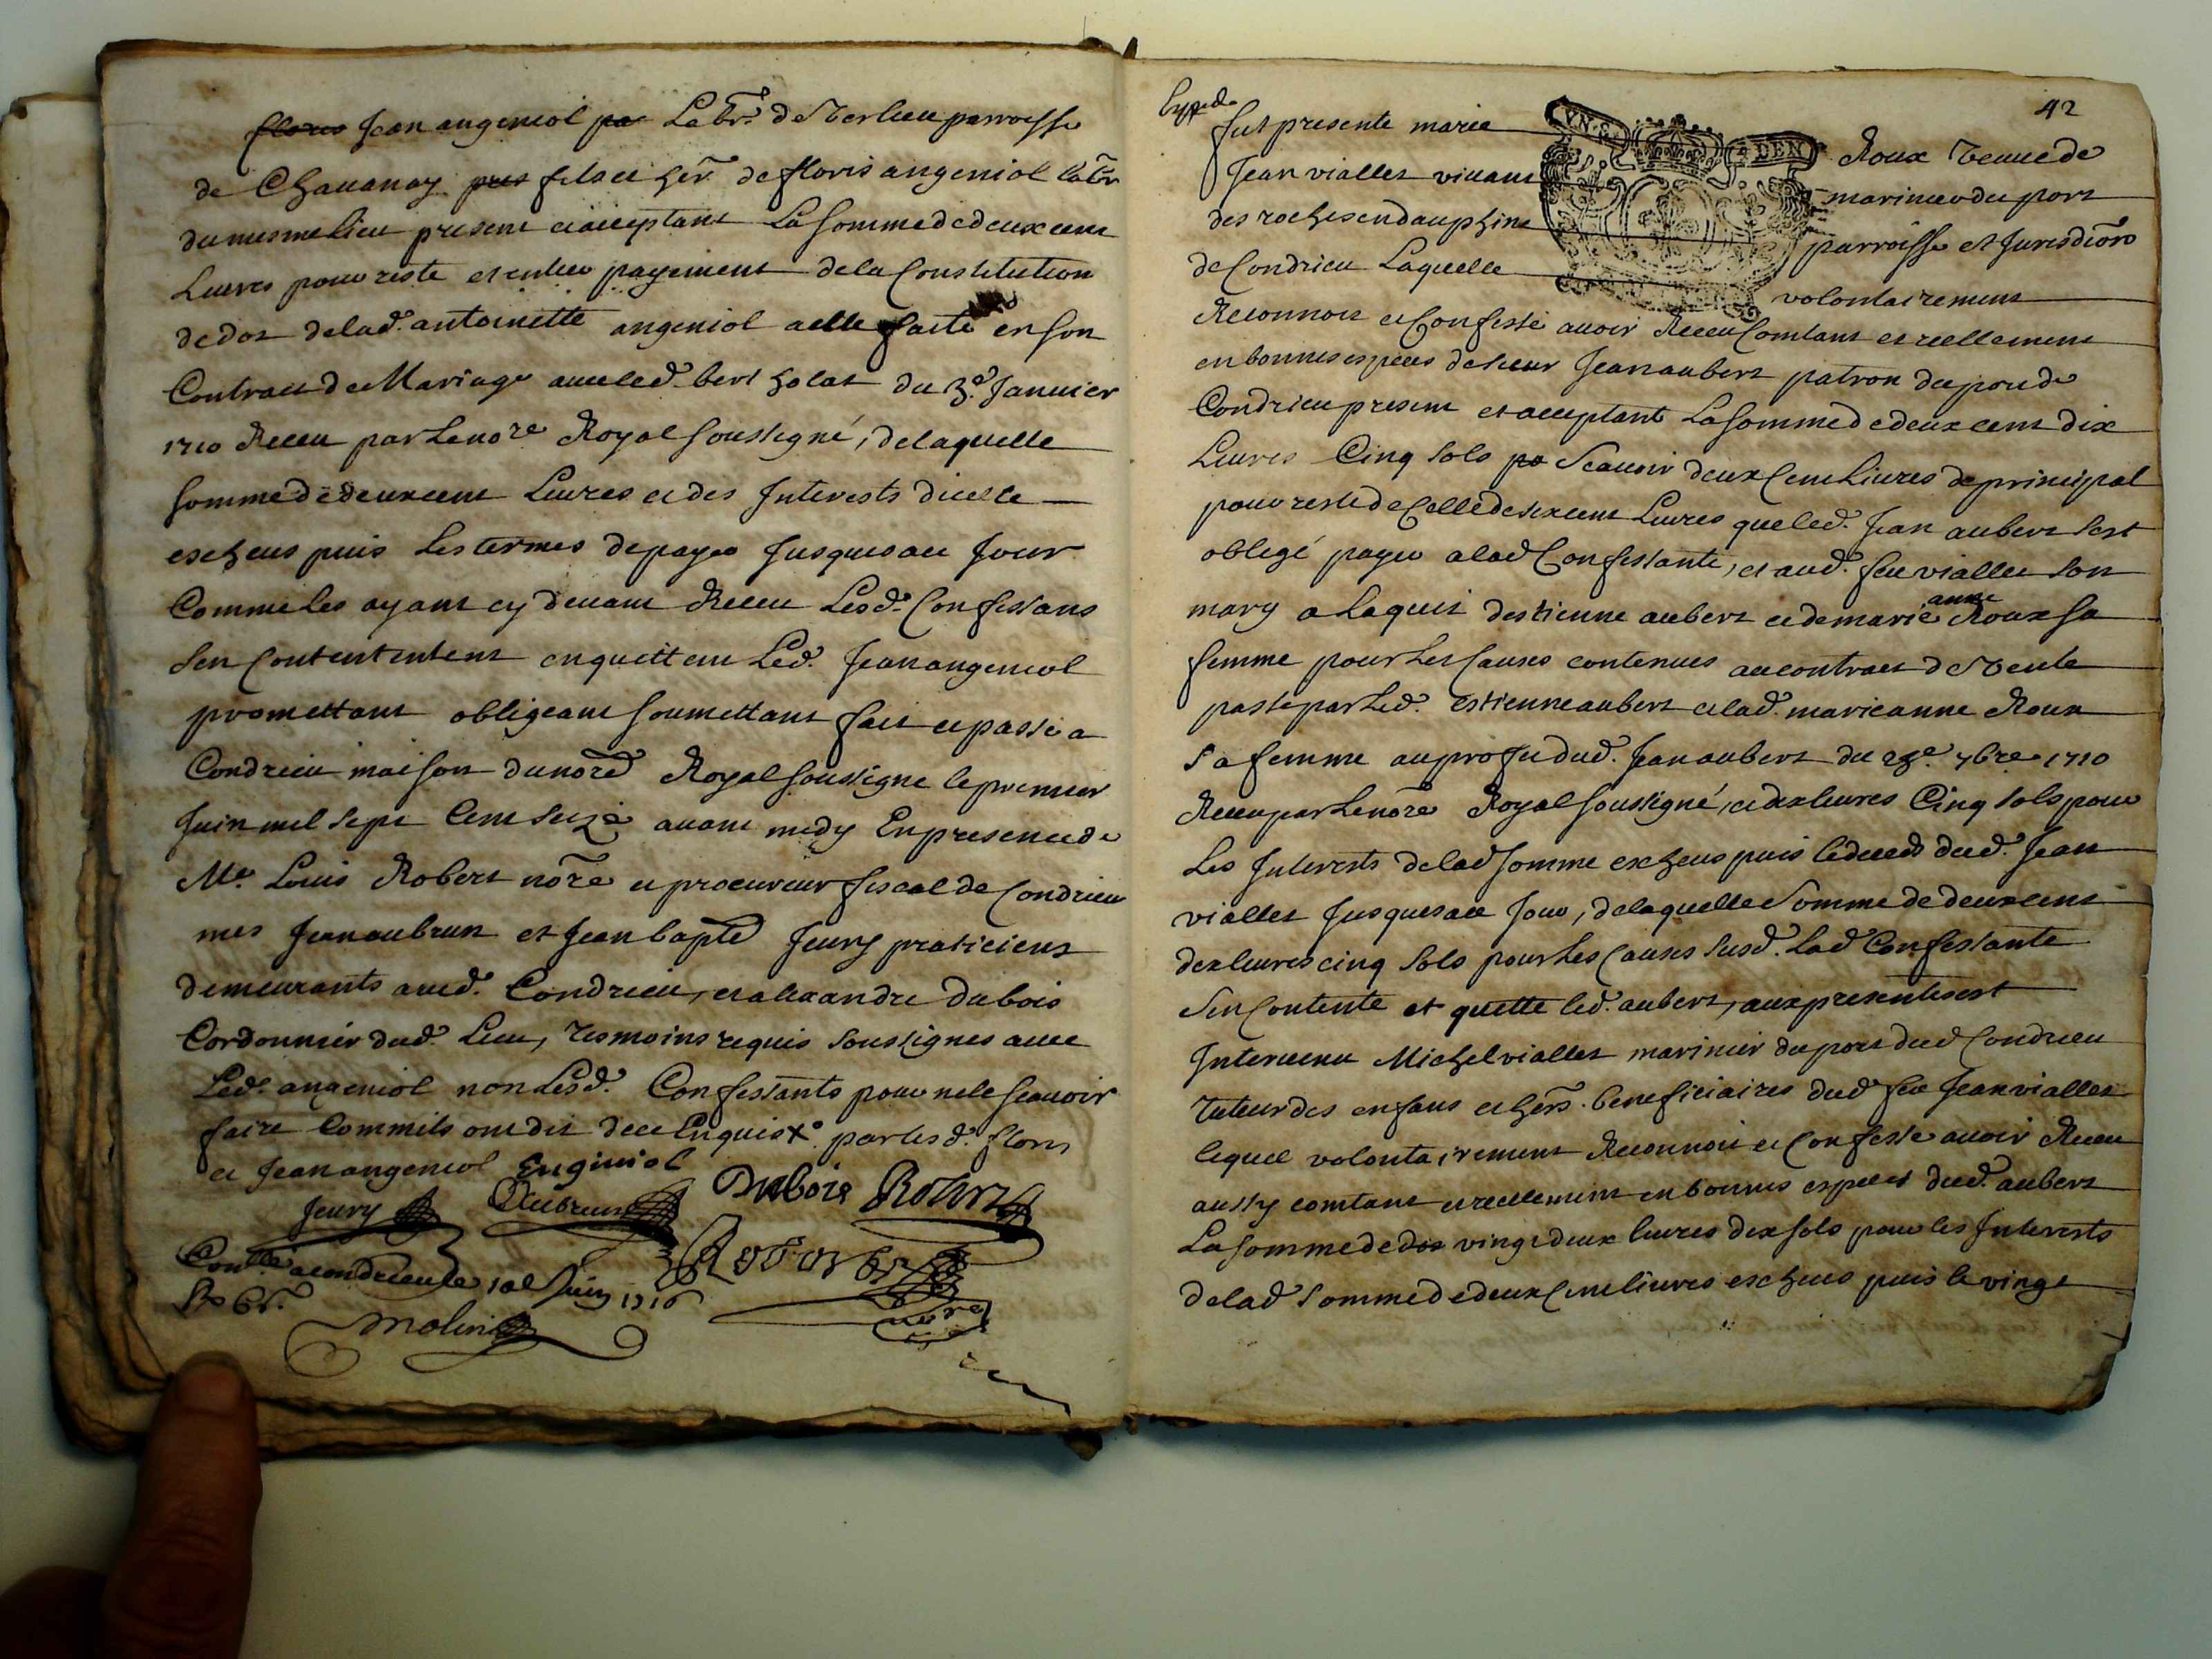 floris Jean angeniol pa Labr. de Verlieu parroisse
de Chauanay pres fils et her. de floris angeniol labr
du mesme lieu present et acceptant La somme de deux cent
Liures pour reste et entier payement de la Constitution
de dot de lad. antoinette angeniol a elle faite en son
Contract de Mariage auec led. bert holat du 3e. Januier
1710 Receu par Le nore Royal soussigné, de laquelle
somme de deux cent Liures et des Interests dicelle
escheus puis Les termes de payer Jusques au Jour
Comme les ayant cy deuant Receu Lesd. Confessans
sen Contentent en quittent Led. Jean angeniol
promettant obligeant soumettant fait et passé a
Condrieu maison du nore Royal soussigne le premier
Juin mil sept Cent seize auant midy En presence de
Me. Louis Robert nore et procureur fiscal de Condrieu
mes Jean aubrun et Jean bapte Jeury praticiens
demeurants aud. Condrieu, et alexandre Dubois
Cordonnier dud. Lieu, tesmoins requis soussignes auec
Led. angeniol non Lesd. Confessants pour ne le scauoir
faire Commils ont dit de ce Enquis X. par lesd. floris
et Jean angeniol Enginiol
Jeury Daubrun Dubois Robert
Conlle a condrieu le 10e Juin 1716
Robert
Molin
nore
Exped.
42
fut presente marie Roux Veuue de
Jean viallet viuant marinier du port
des roches en dauphine parroisse et Jurisdion
de Condrieu Laquelle volontairement
Reconnoit et Confesse auoir Receu Comtant et reellement
en bonnes especes de sieur Jean aubert patron du port de
Condrieu present et acceptant La somme de deux cent dix
Liures Cinq sols pa Scauoir deux Cent Liures de principal
pour reste de Celle de six cent Liures que led. Jean aubert sest
obligé payer a lad Confessante, et aud. feu viallet son
mary a Laquit destienne aubert et de marie anne Roux sa
femme pour Les Causes contenues au contract de Vente
passé par Led. estienne aubert et lad. marie anne Roux
sa femme au profit dud. Jean aubert du 23e. 7bre 1710
Receu par Le nore Royal soussigné, et dix liures Cinq sols pour
Les Interests de lad somme escheus puis le deces dud. Jean
viallet Jusques au Jour, de laquelle Somme de deux cent
dix liures cinq sols pour Les Causes susd. Lad Confessante
sen Contente et quitte led. aubert, aux presentes est
Interuenu Michel viallet marinier du port dud Condrieu
tuteur des enfans et hers. beneficiaires dud feu Jean viallet
lequel volontairement Reconnoit et Confesse auoir Receu
aussy comtant et reellement en bonnes especes dud. aubert
La somme de dix vingt deux liures dix sols pour les Interests
de lad somme de deux Cent liures escheus puis le vingt